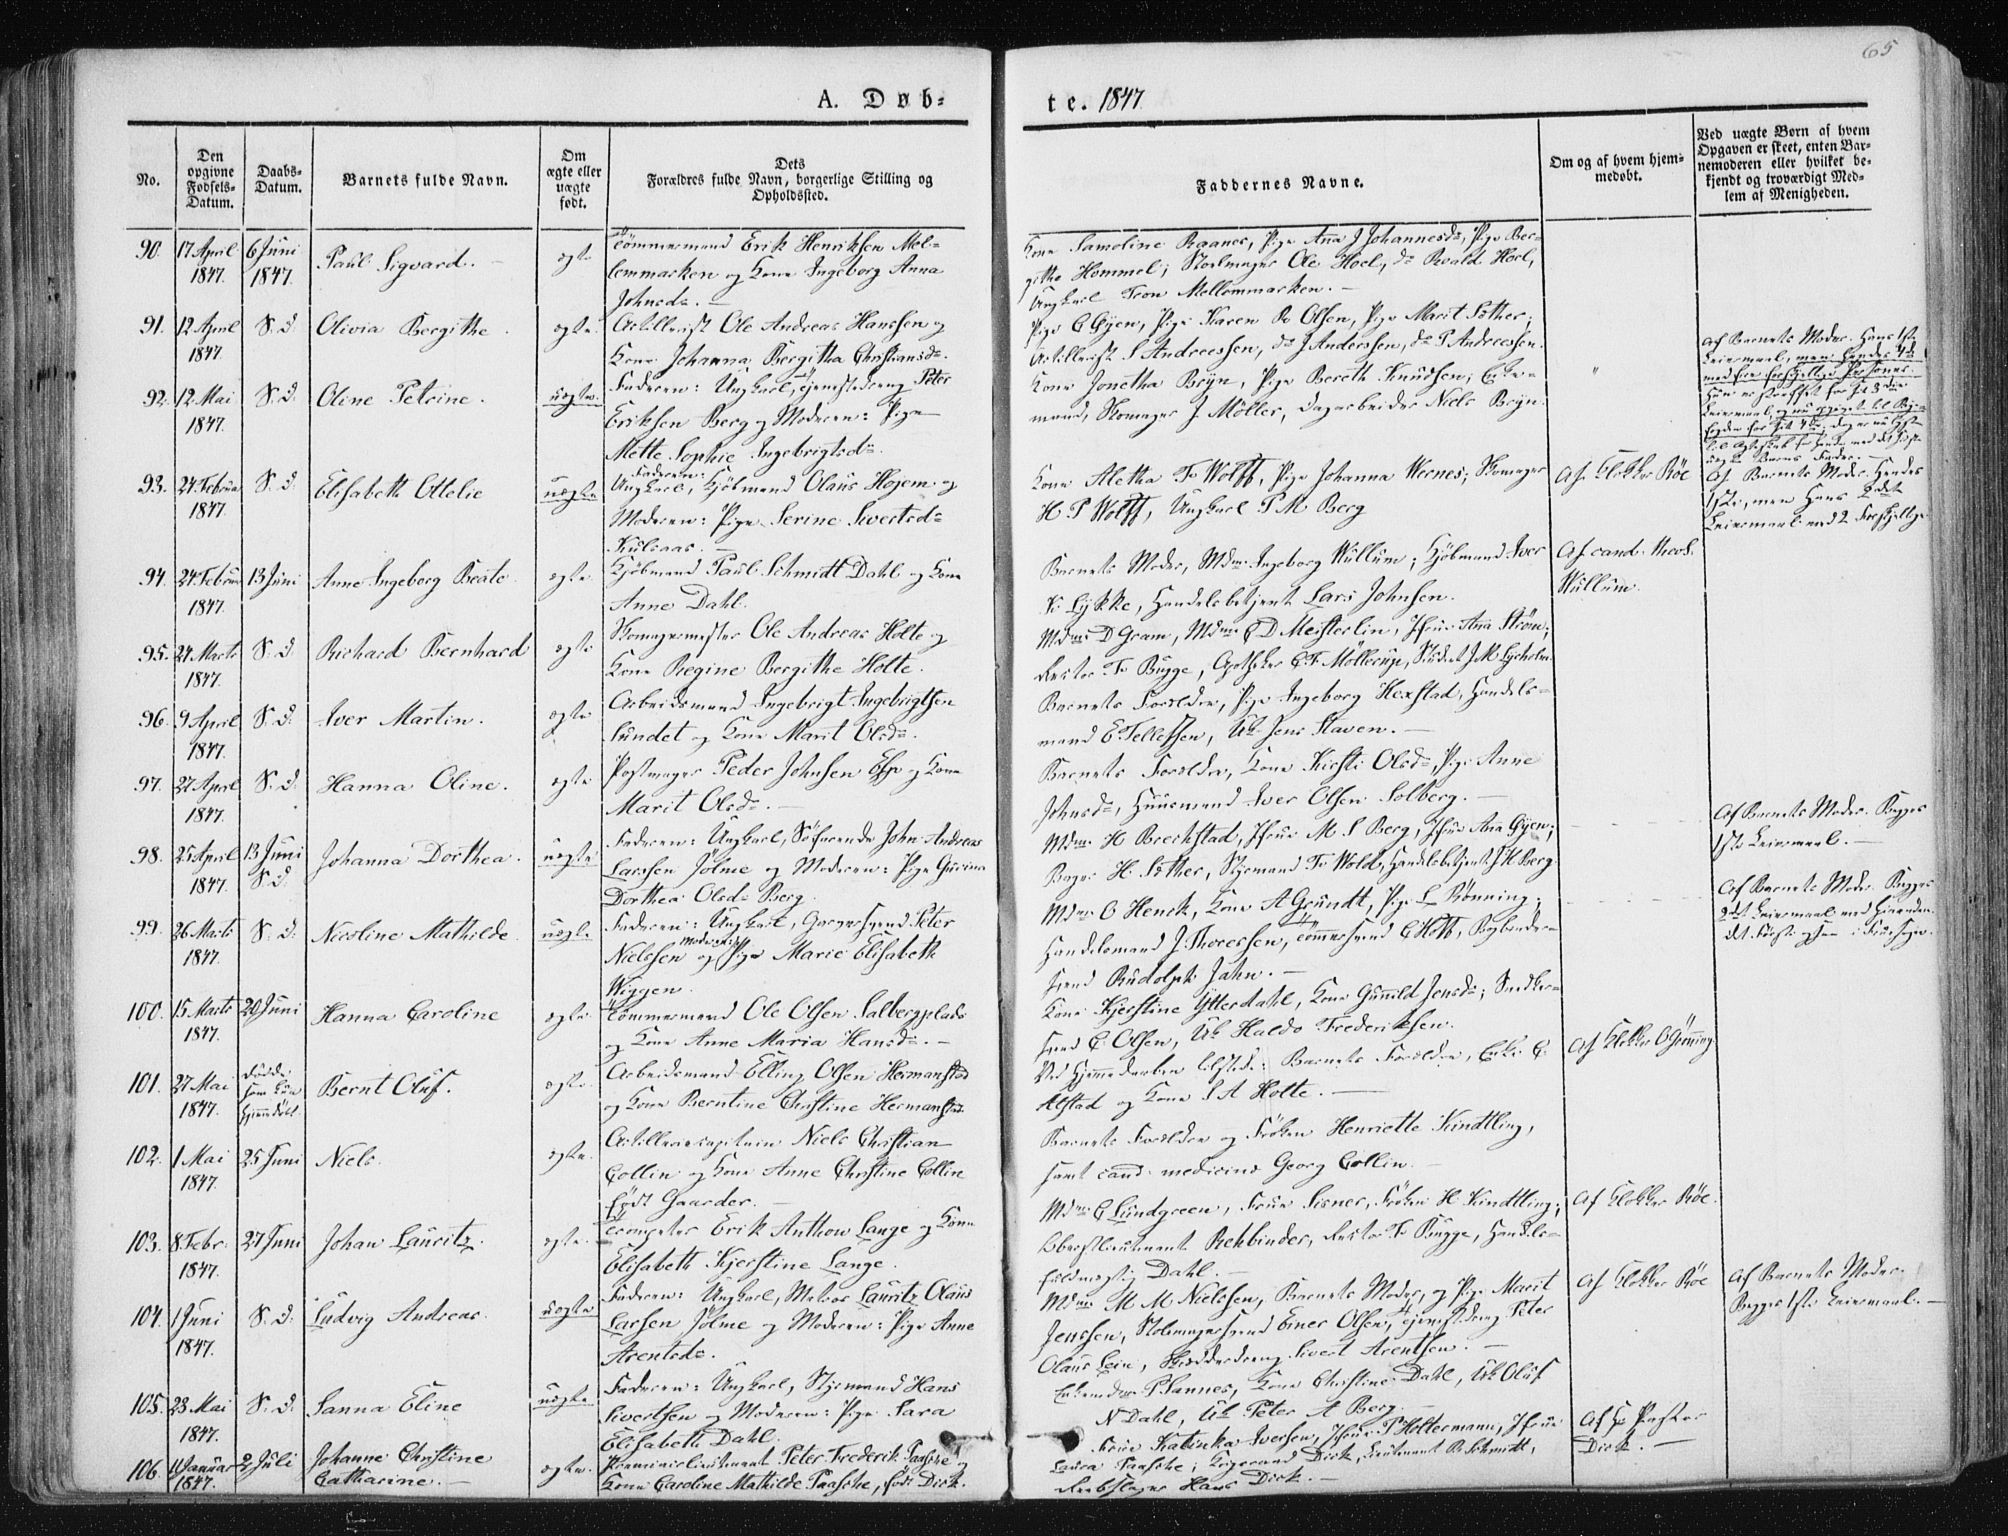 65
A. Døb-
te. 1847.
No.
Den opgivne Fødsels-Datum.
Daabs-Datum.
Barnets fulde Navn.
Om ægte eller uægte født.
Dets
Forældres fulde Navn, borgerlige Stilling og
Opholdssted.
Faddernes Navne.
Om og af hvem hjem-
medøbt.
Ved uægte Børn af hvem
Opgaven er skeet, enten Bar-
nemoderen eller hvilket be-
kjendt og troværdigt Med-
lem af Menigheden.
90. 17 April 1847. 6 Juni 1847. Paul Sigvard. ægte
Tømmermand Erik Henriksen Mel-
lemmarken og Kone Ingeborg Anna
Johnsd.
Kone Samoline Raanes, Pige Ana J Johannesd., Pige Ber-
githe Hommel; Stolmager Ole Hoel, do Roald Hoel,
Ungkarl Tron Mellemmarken.
91. 12 April 1847. S. d. Olivia Bergithe. ægte
Artillerist Ole Andreas Hanssen og
Kone Johanna Bergitha Christiansd.
Pige C Gjen, Pige Karen R Olsen, Pige Marit Sæther;
Artillerist S Andreessen, do J Anderssen, do P Andreesen.
92. 12 Mai 1847. S. d. Oline Petrine. uægte.
Faderen: Ungkarl, Tjenestedreng Peter
Eriksen Berg og Moderen: Pige
Mette Sophie Ingebrigtsd.
Kone Jonetha Bryn, Pige Bereth Knudsen; Enke-
mand, Skomager J Möller, Dagarbeider Niels Bryn.
"
Af Barnets Moder. Hans 1ste
Leiermaal, men Hendes 4de
med fire forskjellige Personer.
93. 24 Februar 1847. S. d. Elisabeth Ottelie uægte
Faderen:
Ungkarl, Kjøbmand Olaus Hojem og
Moderen: Pige Serine Sivertsd.
Kulsaas.
Kone Aletha F Wolff, Pige Johanna Wernes; Skomager
H P Wolff, Ungkarl P M Berg
Af Klokker Röe
Af Barnets Moder. Hendes
1ste, men Hans 2det
Leiermaal med 2 Forskjellige
94. 24 Februar 1847. 13 Juni Anne Ingeborg Beate. ægte
Kjøbmand Paul Schmidt Dahl og Kone
Anne Dahl.
Barnets Moder, Mdme Ingeborg Wullum; Kjøbmand Iver
K Lykke, Handelsbetjent Lars Johnsen.
Af cand. theol.
Wullum.
95. 24 Marts 1847. S. d. Richard Bernhard ægte
Skomagermester Ole Andreas Holte og
Kone Regine Bergithe Holte.
Mdme D Gram, Mdme C D Meisterlin, Jfrue Ana Ström;
Rector F Bugge, Apotheker C F Möllerup, Student J M Lysholm.
96. 9 April 1847. S. d. Iver Martin. ægte
Arbeidsmand Ingebrigt Ingebrigtsen
Sundet og Kone Marit Olsd.
Barnets Forældre, Pige Ingeborg Hexstad, Handels-
mand E Tellefsen, Uk. Jens Staven.
97. 27 April 1847. S. d. Hanna Oline. ægte
Postmager Peder Johnsen Esp og Kone
Marit Olsd.
Barnets Forældre, Kone Kirsti Olsd., Pige Anne
Johnsd., Huusmand Iver Olsen Solberg.
98. 25 April 1847. 13 Juni S. d. Johanna Dorthea. uægte
Faderen: Ungkarl, Söfarende John Andreas
Larssen Jölme og Moderen: Pige Gurina
Dorthea Olsd. Berg.
Mdme H Breckstad, Jfrue M S Berg, Jfrue Ana Gjen;
Bager H Sæther, Styrmand F Wold, Handelsbetjent J H Berg.
Af Barnets Moder. Begges
1ste Leiermaal.
99. 26 Marts 1847. S. d. Nicoline Mathilde. uægte
Faderen: Ungkarl, Garversvend Peter
Nielssen og Moderen: Pige Marie Elisabeth
Wiggen.
Mdme O Henck, Kone A Grundt, Pige L Rönning;
Handelsmand J Thoressen, Tömmersvend C Holt, Bogbinder-
svend Rudolph Jahn.
Af Barnets Moder. Begges
2det Leiermaal med Hinanden.
100. 15 Marts 1847. 20 Juni Hanna Caroline ægte
Tömmermand Ole Olsen Salbergplads
og Kone Anne Maria Hansd.
Kone Kjerstine Ytterdahl, Kone Gunild Jensd.; Snedker-
svend C Olsen, Uk Haldo Frederiksen.
101. 27 Mai 1847. Döde som kun Hjemmedöbt. Bernt Oluf. ægte
Arbeidsmand Elling Olsen Hermanstad
og Kone Berntine Christine Hermanstad.
Ved Hjemmedaaben tilstede: Barnets Forældre, Enke E.
Alstad og Kone S A Holte.
Af Klokker O Gröning.
102. 1 Mai 1847. 25 Juni Niels. ægte
Artilleriecapitain Niels Christian
Collin og Kone Anne Christine Collin
født Gaarder.
Barnets Forældre og Frøken Henriette Kindtling,
samt cand. medicine Georg Collin.
103. 8 Febr. 1847. 27 Juni Johan Lauritz. ægte
Trompeter Erik Anthon Lange og Kone
Elisabeth Kjerstine Lange.
Mdme C Lundgreen, Frue Sisner, Frøken H Kindtling;
Oberstlieutenant Rehbinder, Rector F Bugge, Handels-
fuldmægtig Dahl.
Af Klokker Röe.
104. 1 Juni 1847. S. d. Ludvig Andreas. uægte
Faderen: Ungkarl, Matros Lauritz Olaus
Larsen Jölme og Moderen: Pige Anne
Arentsd.
Mdme M M Nielssen, Barnets Moder, og Pige Marit
Jenssen, Stolmagersvend Einer Olsen, Tjenestedreng Peter
Olaus Lein, Skrædderdreng Sivert Arentsen.
Af Klokker Röe
Af Barnets Moder.
Begges 1ste Leiermaal.
105. 23 Mai 1847. S. d. Sanna Eline uægte
Faderen: Ungkarl, Styrmand Hans
Sivertsen og Moderen: Pige Sara
Elisabeth Dahl.
Enkemdme P Sannes, Kone Christine Dahl, Uk Oluf
N Dahl, Uk Peter A Berg.
106. 11 Januar 1847. 2 Juli Johanne Christine Catharine. ægte.
Premierlieutenant Peter Frederik Paasche og
Kone Caroline Mathilde Paasche, født Dick.
Frue Katinka Iversen, Jfrue P Holtermann, Jfrue
Laura Paasche; Krigsraad Dick, Lieutenant B Schmidt,
Rebslager Hans Dick.
Af Hr Pastor
Dick.